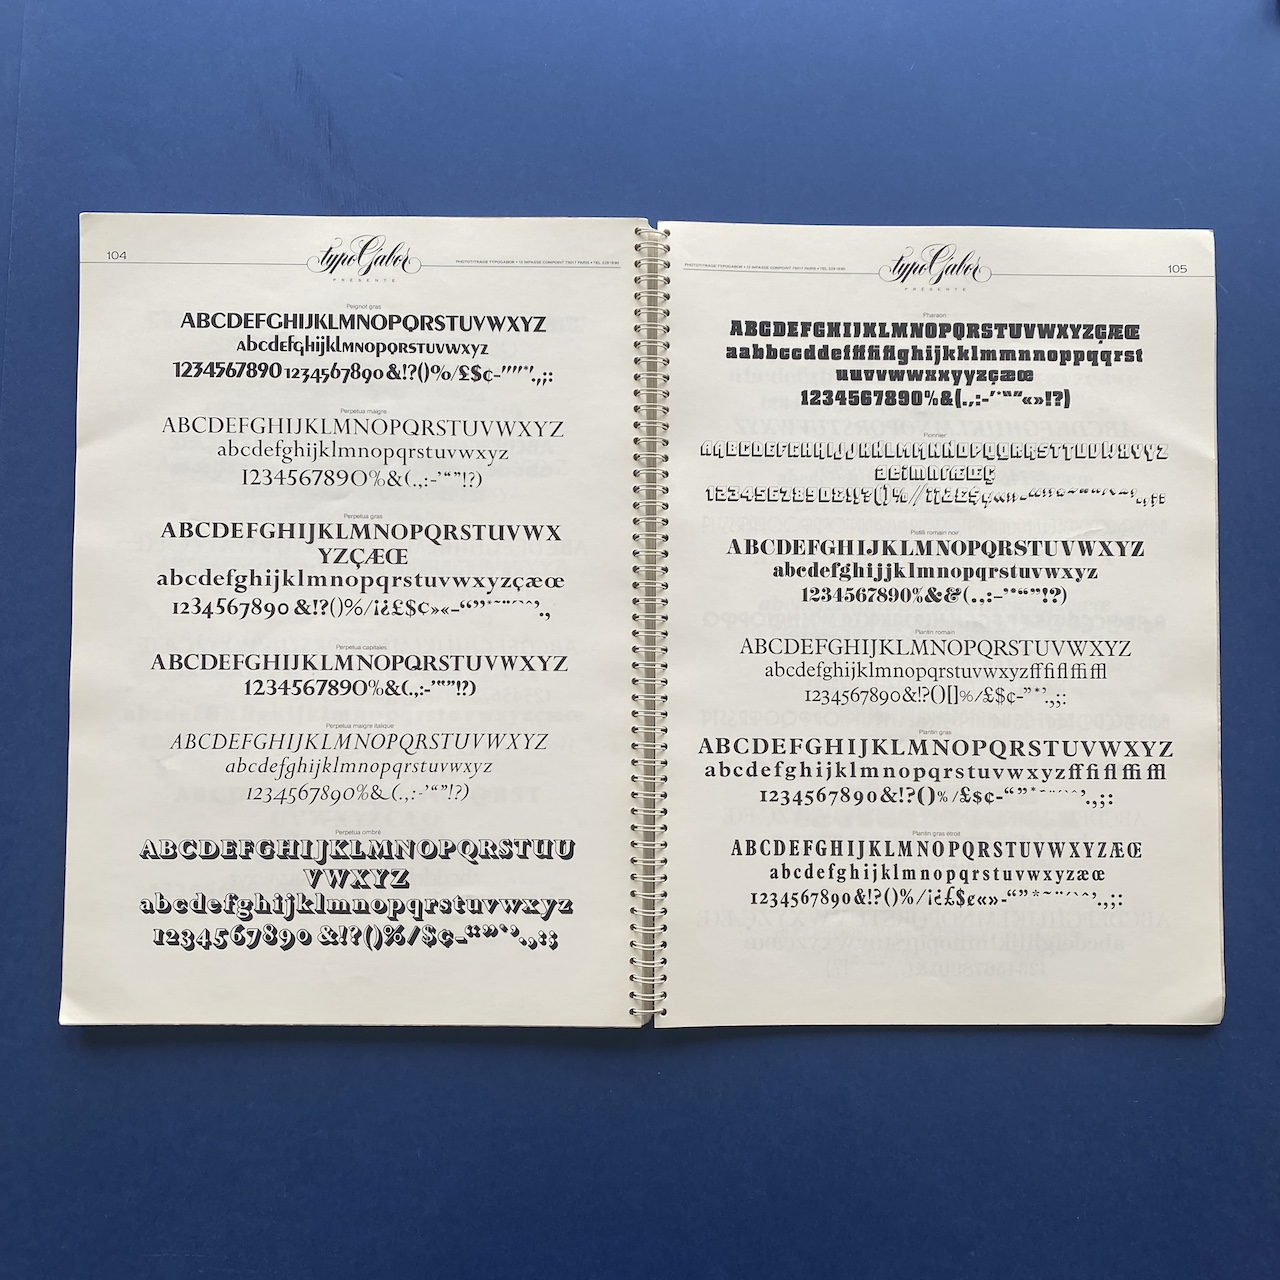 104
typoGabor
PRÉSENTE
PHOTOTITRAGE TYPOGABOR • 12 IMPASSE COMPOINT 75017 PARIS • TEL
Peignot gras
ABCDEFGHIJKLMNOPQRSTUVWXYZ
abcdefghijklmnopqrstuvwxyz
1234567890 1234567890 &!?()%/£$¢-
Perpetua maigre
ABCDEFGHIJKLMNOPQRSTUVWXYZ
abcdefghijklmnopqrstuvwxyz
1234567890%&(.,:-’“”!?)
Perpetua gras
ABCDEFGHIJKLMNOPQRSTUVWX
YZÇÆŒ
abcdefghijklmnopqrstuvwxyzçæœ
1234567890 &!?()%/¡¿£$¢»«-“”*~¨´`^’.,
Perpetua capitales
ABCDEFGHIJKLMNOPQRSTUVWXYZ
1234567890%&(.,:-’“”!?)
Perpetua maigre italique
ABCDEFGHIJKLMNOPQRSTUVWXYZ
abcdefghijklmnopqrstuvwxyz
1234567890%&(.,:-’“”!?)
Perpetua ombré
ABCDEFGHIJKLMNOPQRSTUU
VWXYZ
abcdefghijklmnopqrstuvwxyz
1234567890 &!?()%/$¢-“”‘’.,:;
PHOTOTITRAGE TYPOGABOR • 12 IMPASSE COMPOINT 75017 PARIS • TEL
typoGabor
PRÉSENTE
105
Pharaon
ABCDEFGHIJKLMNOPQRSTUVWXYZÇÆŒ
aabbccddefffiflghijkklmmnnoppqqrst
uuvvwwxxyyzçæœ
1234567890%&(.,:-’“”«»!?)
Pionnier
1234567890&!?()%/
Pietilli romain noir
ABCDEFGHIJKLMNOPQRSTUVWXYZ
abcdefghijjklmnopqrstuvwxyz
1234567890%&&(.,:-’“”!?)
Plantin romain
ABCDEFGHIJKLMNOPQRSTUVWXYZ
abcdefghijklmnopqrstuvwxyzfffiflffiffl
1234567890&!?()[]%/£$¢-”*’.,;:
Plantin gras
ABCDEFGHIJKLMNOPQRSTUVWXYZ
abcdefghijklmnopqrstuvwxyzfffiflffiffl
1234567890&!?()%/£$¢-“”*~¨´`^’.,;:
Plantin gras étroit
ABCDEFGHIJKLMNOPQRSTUVWXYZÆŒ
abcdefghijklmnopqrstuvwxyzæœ
1234567890&!?()%/¡¿£$¢«»-“”*~¨´`^’.,;: